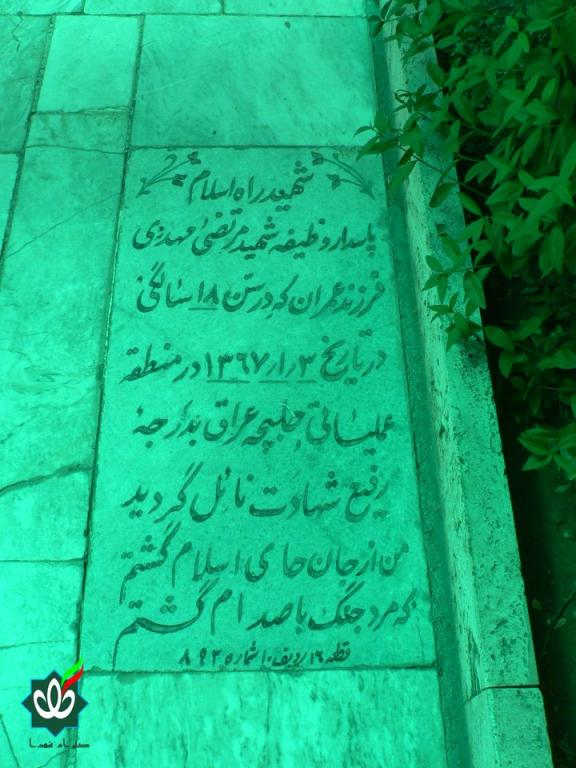 شهید راه اسلام
پاسدار وظیفه شهید مرتضی مهدوی
فرزند عمران که در سن ۱۸ سالگی
در تاریخ ۱۳۶۷/۱/۳ در منطقه
عملیاتی حلبچه عراق بدرجه
رفیع شهادت نائل گردید
من از جان حامی اسلام گشتم
که مرد جنگ با صدام گشتم
قطعه ۱۶ ردیف ۱۰ شماره ۸۹۲
گلزار شهدا